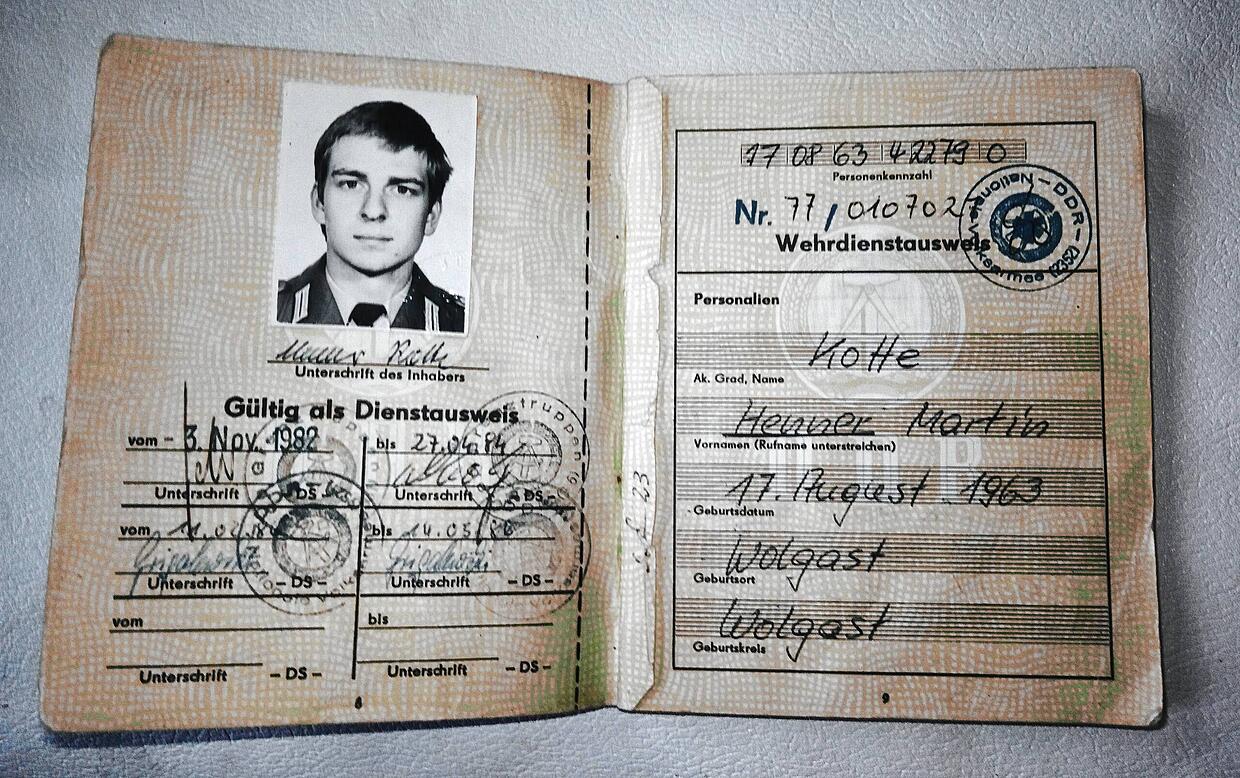 Unterschrift des Inhabers
Gültig als Dienstausweis
vom – 3. Nov. 1982 bis 27.04.84
Unterschrift – DS – Unterschrift – DS –
vom 11.02. bis 14.03.86
Unterschrift – DS – Unterschrift – DS –
vom bis
Unterschrift – DS – Unterschrift – DS –
8
17 08 63 4 2279 0
Personenkennzahl
Nr. 77 / 010702
Wehrdienstausweis
Nationale Volksarmee (2352) – DDR –
Personalien
Kotte
Ak. Grad, Name
Henner Martin
Vornamen (Rufname unterstreichen)
17. August 1963
Geburtsdatum
Wolgast
Geburtsort
Wolgast
Geburtskreis
DDR
9